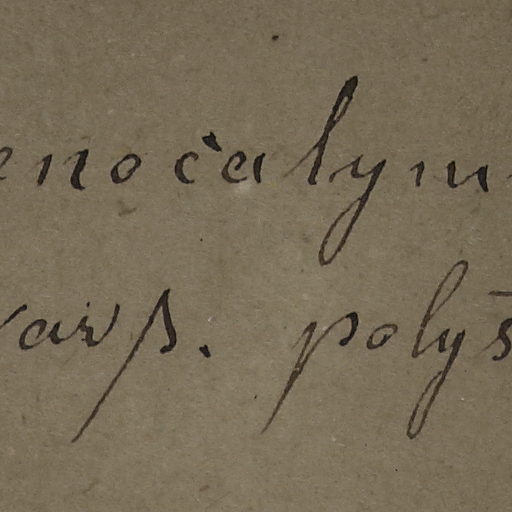 enocalym
var β. polys